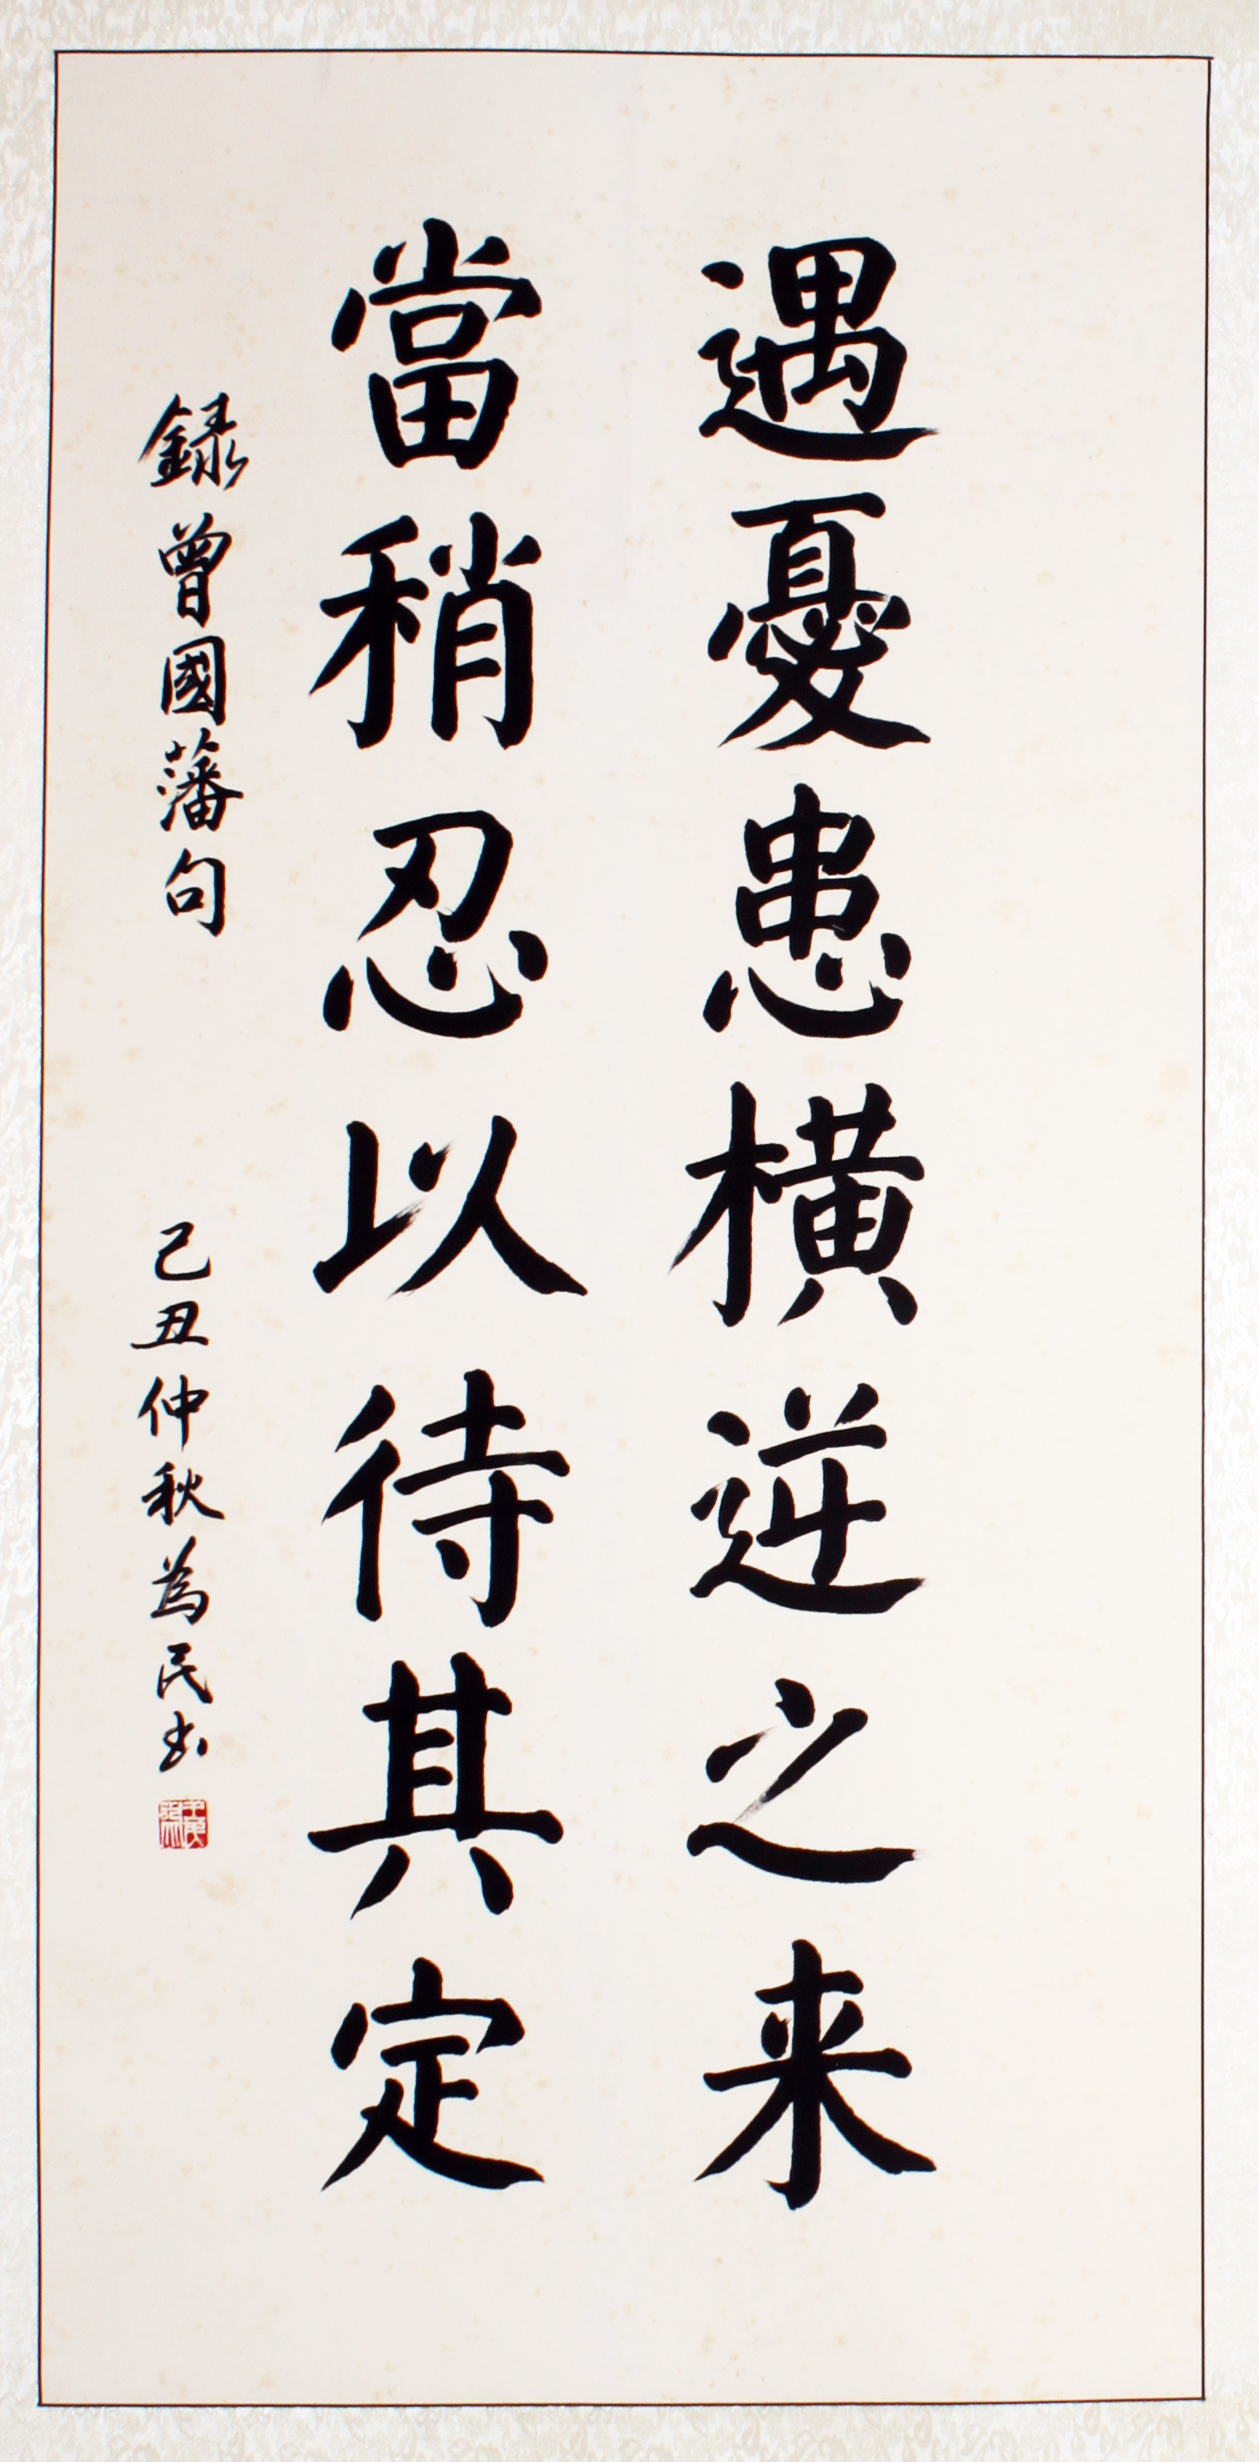 遇憂患橫逆之来
當稍忍以待其定
録曾國藩句 己丑仲秋為民书